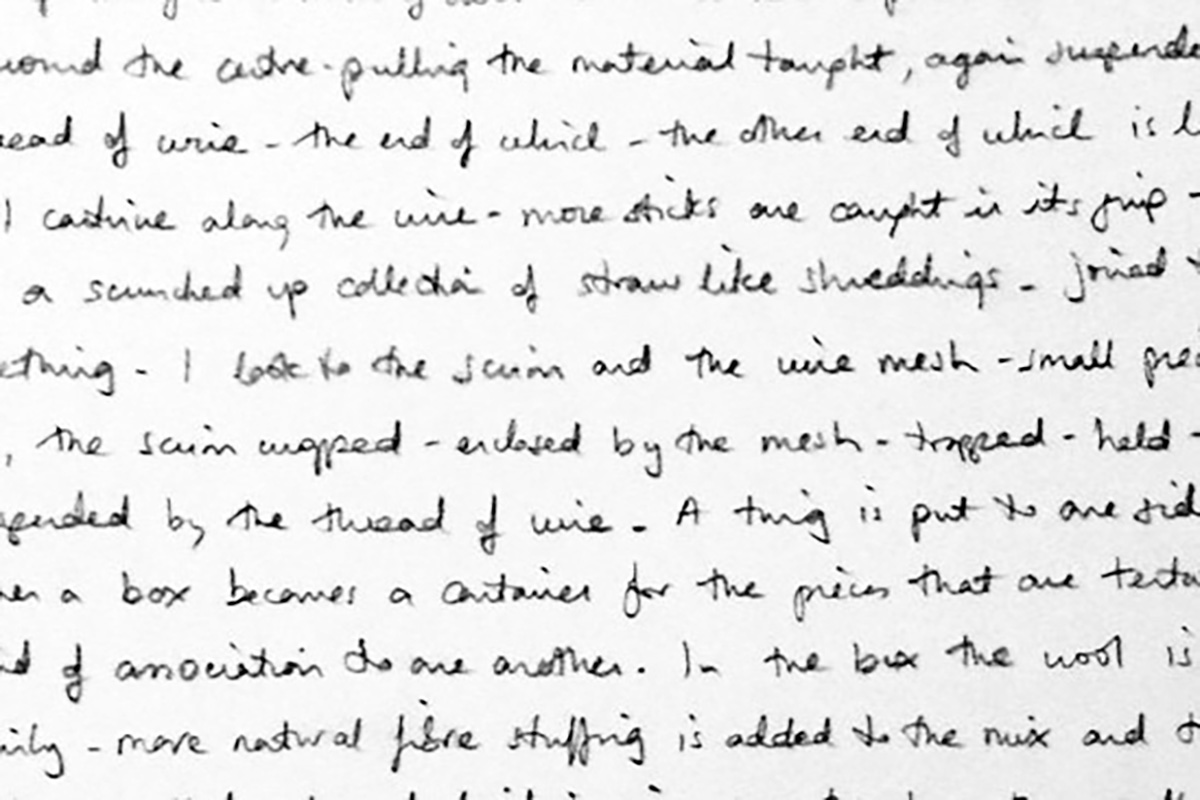 wound the centre - pulling the material taught, again suspende
read of wire - the end of which - the other end of which is l
I continue along the wire - more sticks are caught in its grip -
a scrunched up collection of straw like shreddings - joined t
ething - I look to the scrim and the wire mesh - small pie
, the scrim wrapped - enclosed by the mesh - trapped - held -
spended by the thread of wire - A twig is put to one sid
hen a box becomes a container for the pieces that are tenta
nd of association to one another. In the box the wool is
ily - more natural fibre stuffing is added to the mix and t